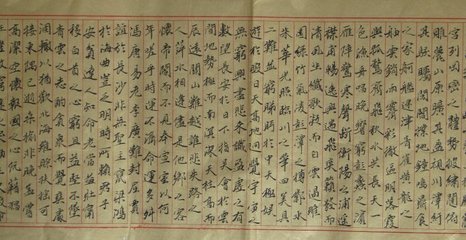 宮列岡巒之體勢披繡闥俯
雕甍山原曠其盈視川澤紆
其駭矚閭閻撲地鐘鳴鼎食
之家舸艦彌津青雀黃龍之
舳雲銷雨霽彩徹區明落霞
與孤鶩齊飛秋水共長天一
色漁舟唱晚響窮彭蠡之濱
雁陣驚寒聲斷衡陽之浦遙
襟甫暢逸興遄飛爽籟發而
清風生纖歌凝而白雲遏睢
園綠竹氣凌彭澤之樽鄴水
朱華光照臨川之筆四美具
二難並窮睇眄於中天極娛
遊於暇日天高地迥覺宇宙之
無窮興盡悲來識盈虛之有
數望長安於日下目吳會於雲
間地勢極而南溟深天柱高而北
辰遠關山難越誰悲失路之
人萍水相逢盡是他鄉之客
懷帝閽而不見奉宣室以何
年嗟乎時運不濟命運多舛
馮唐易老李廣難封屈賈
誼於長沙非無聖主竄梁鴻
於海曲豈乏明時所賴君子
安貧達人知命老當益壯寧
移白首之心窮且益堅不墜
青雲之志酌貪泉而覺爽處
涸轍以猶歡北海雖賒扶搖可
接東隅已逝桑榆非晚孟嘗
高潔空懷報國之心阮籍猖